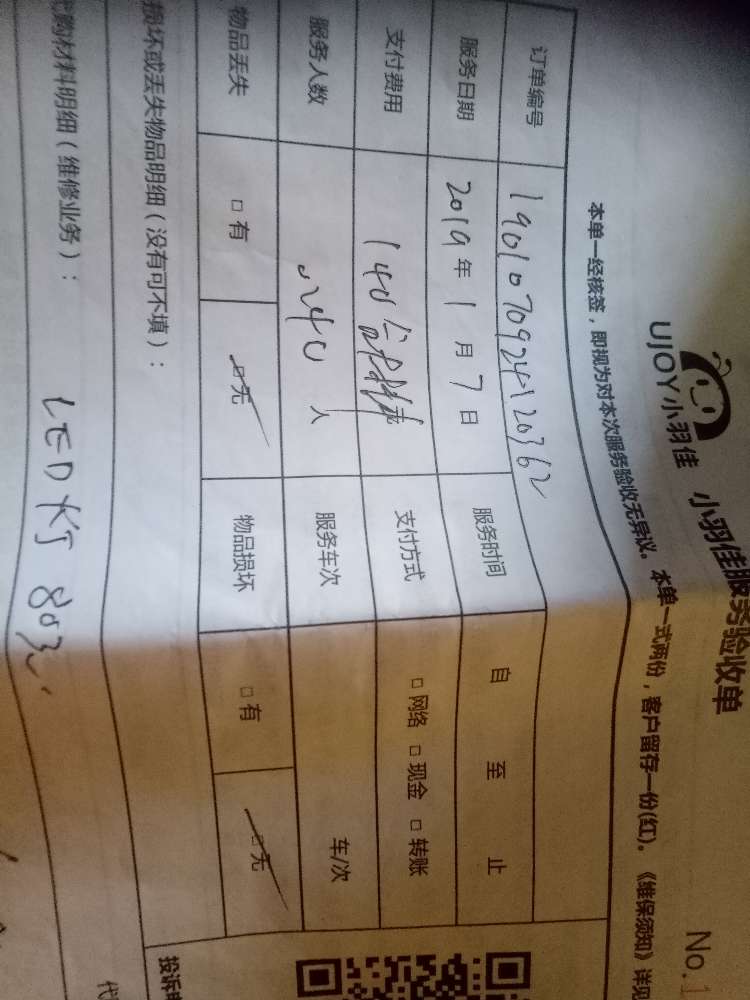 UJOY小羽佳 小羽佳服务验收单
No.1
本单一经核签，即视为对本次服务验收无异议。本单一式两份，客户留存一份(红)。《维保须知》详见
订单编号 1901070924120362
服务日期 2019年1月7日 服务时间 自 至 止
支付费用 140 支付方式 □网络 □现金 □转账
服务人数 人 服务车次 车/次
物品丢失 □有 □无 物品损坏 □有 □无
损坏或丢失物品明细（没有可不填）：
投诉
购材料明细（维修业务）： LED灯 80元
代